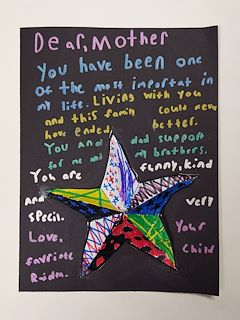 Dear, Mother
You have been one
of the most importat in
my life. Living with you
and this famil could neve
have ended better.
You and dad support
for me and my brothers.
You are funny, kind
and specil. very
Love, Your
favriote Child